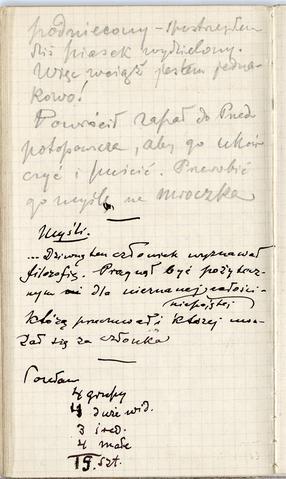 podniecony – spostrzegłem
dziś piasek wydzielony.
Więc wciąż jestem jedna-
kowo!
Powrócił zapał do Przed-
potopowca, aby go ukoń-
czyć i puścić. Przerobić
go myślę na mroczka
Myśli.
... Dziwny ten człowiek wyznawał
filozofię. Pragnął być pożytecz-
nym dla nieznanej całości
niepojętej
którą przeczuwał i której
żał się za członka
4 grupy
4 duże wid.
3 śred.
4 małe
15 szt.